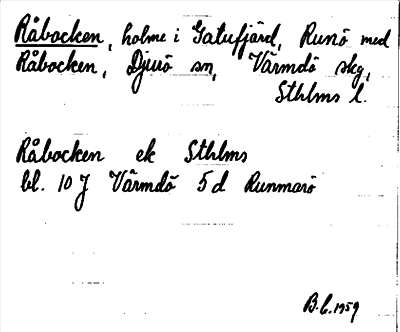 Råbocken, holme i Gatufjärd, Runö med
Råbocken, Djurö sn, Värmdö skg,
Sthlms l.
Råbocken ek Sthlms
bl. 10 J Värmdö 5 d Runmarö
B.C. 1959